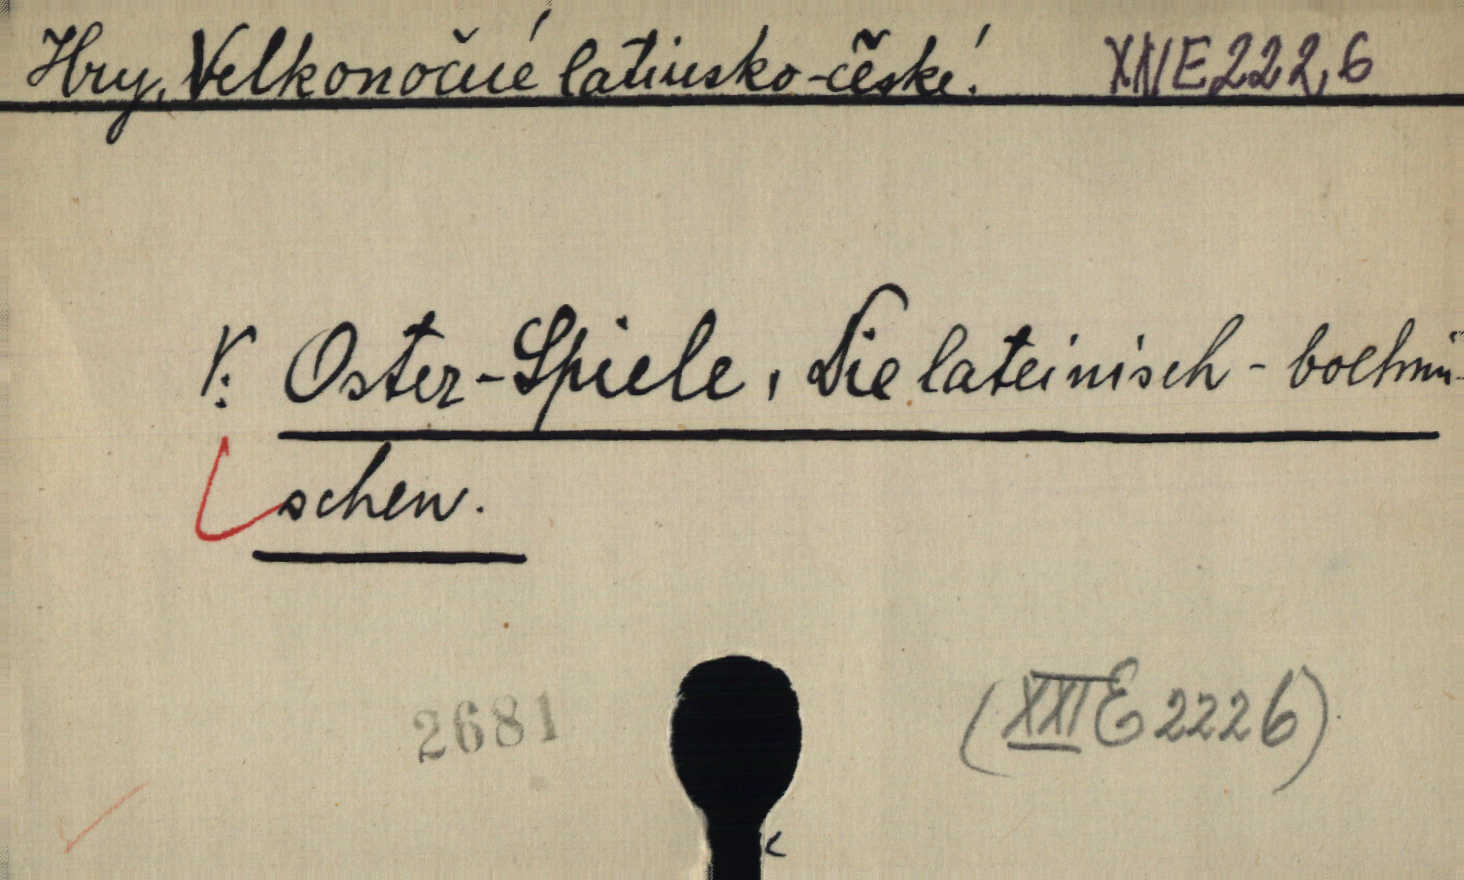 Hry, Velkonočné latinsko-české! XXI E 222, 6
V: Oster-Spiele, Die lateinisch-boehmi-
schen.
2681
(XXI E 222 6)